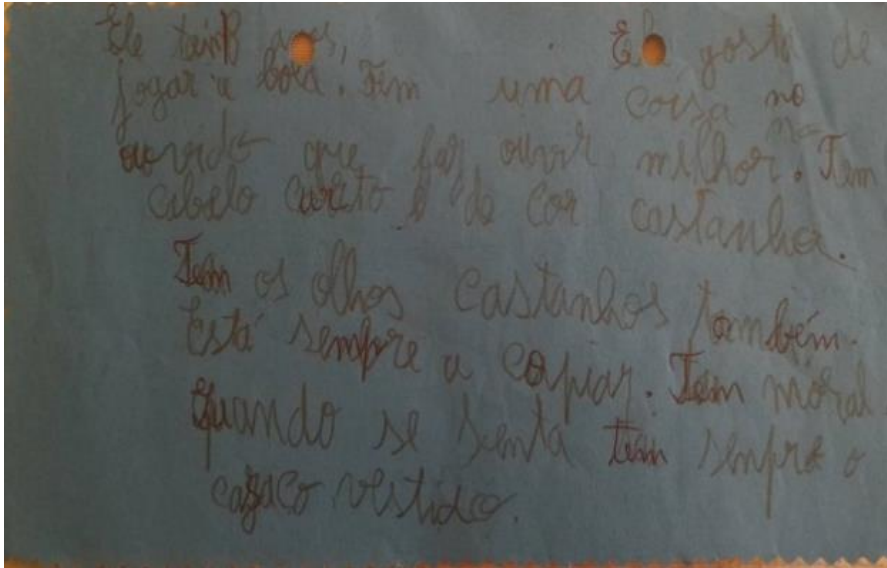 Ele tem 8 anos, E gosta de
jogar a bola. Tem uma coisa no
ouvido que faz ouvir milhor. Tem
cabelo curto e de cor castanha.
Tem os olhos castanhos também.
Está sempre a copiar. Tem moral
Quando se senta tem sempre o
casaco vestido.